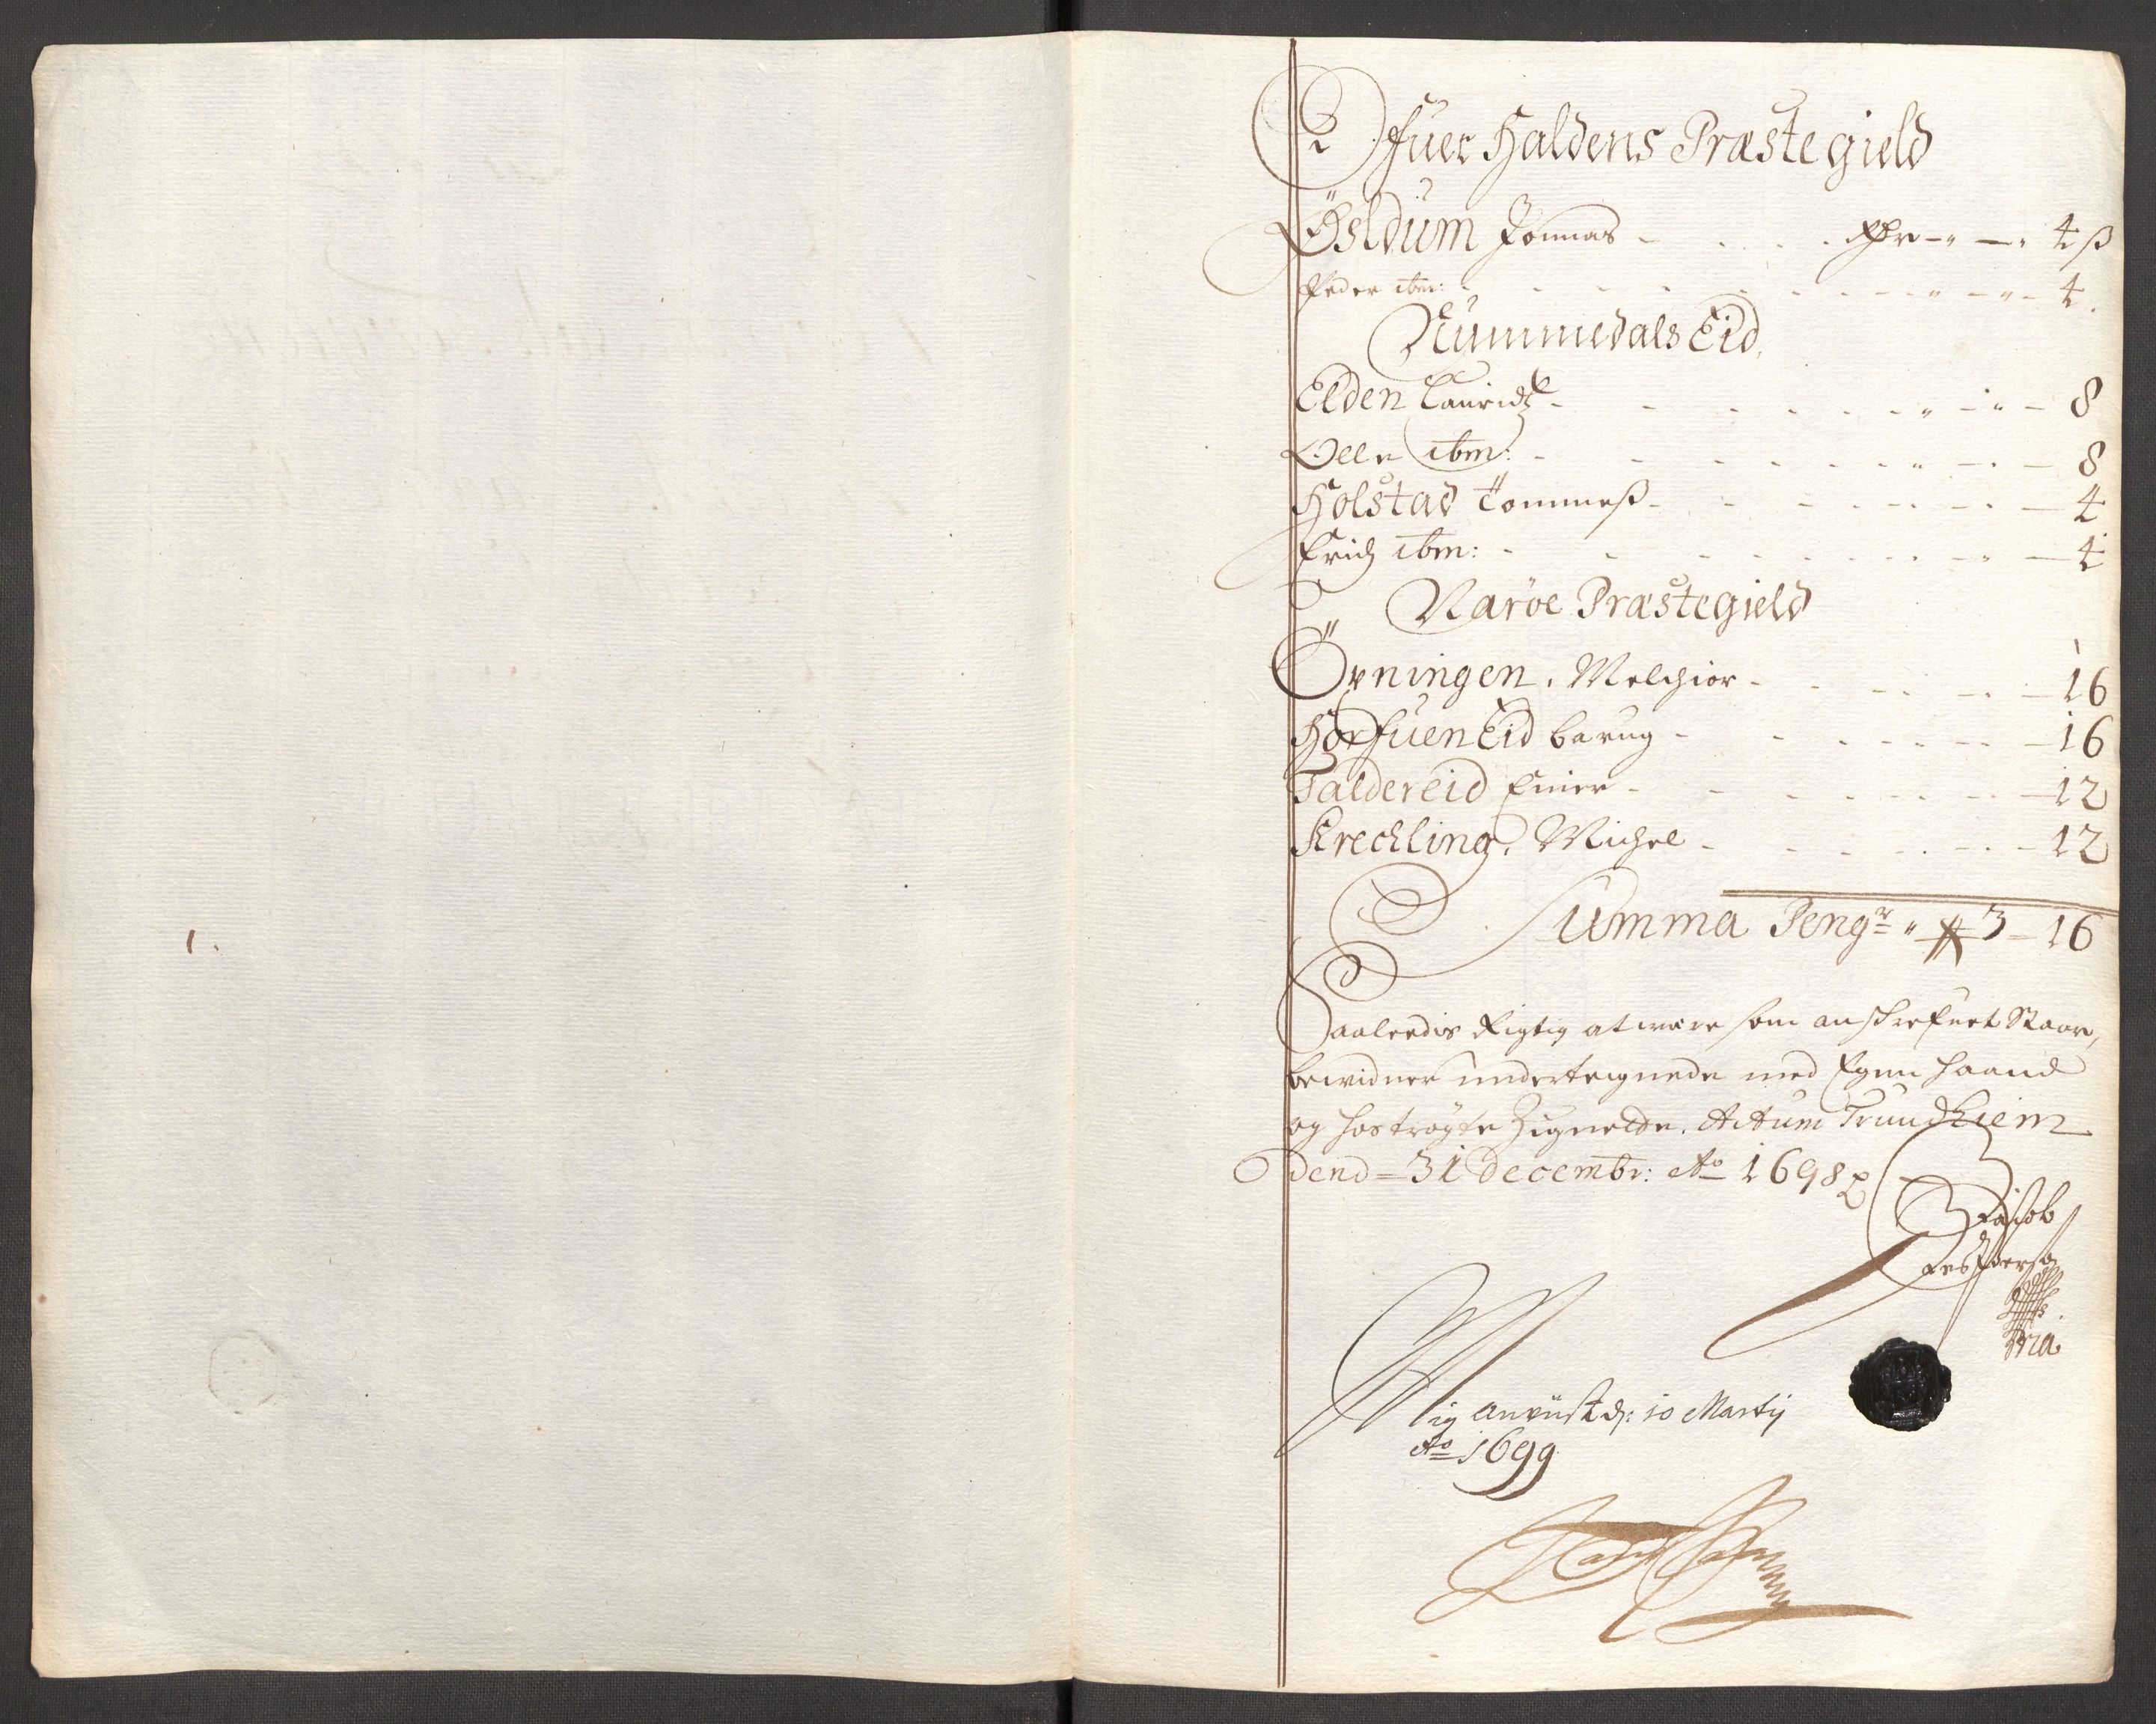 Ofuer Haldens Præstegield
Össldum Jonnas - . . . - " — " 4 ß
Peder ibm: - - - - - " — " - 4.
Nummedals Eid
Elden Lauridtz - - - - - " - " - 8
Olle ibm: - - - - - " — - — 8
Holstad Tommeß - - - - - — 4
Erich ibm: - - - - - " — 4
Naröe Præstegield
Öpningen. Melchior - - - - — 16
Hörfuen Eid barug - - - - - — 16
Faldereid Einer - - - - - — 12
Kreckling. Michel - - - - - — 12
Summa Pengr " 3 – 16
Saaledis Rigtig at være som anschrefuet Staar,
bewidner underteignede med Egen haand
og hostrøgte Zignette. Actum Trundhiem
dend = 31 decembr: Ao 1698
Jacob
Jespersøn
mia
Mig anviist d: 10 Martij
Ao 1699
1.